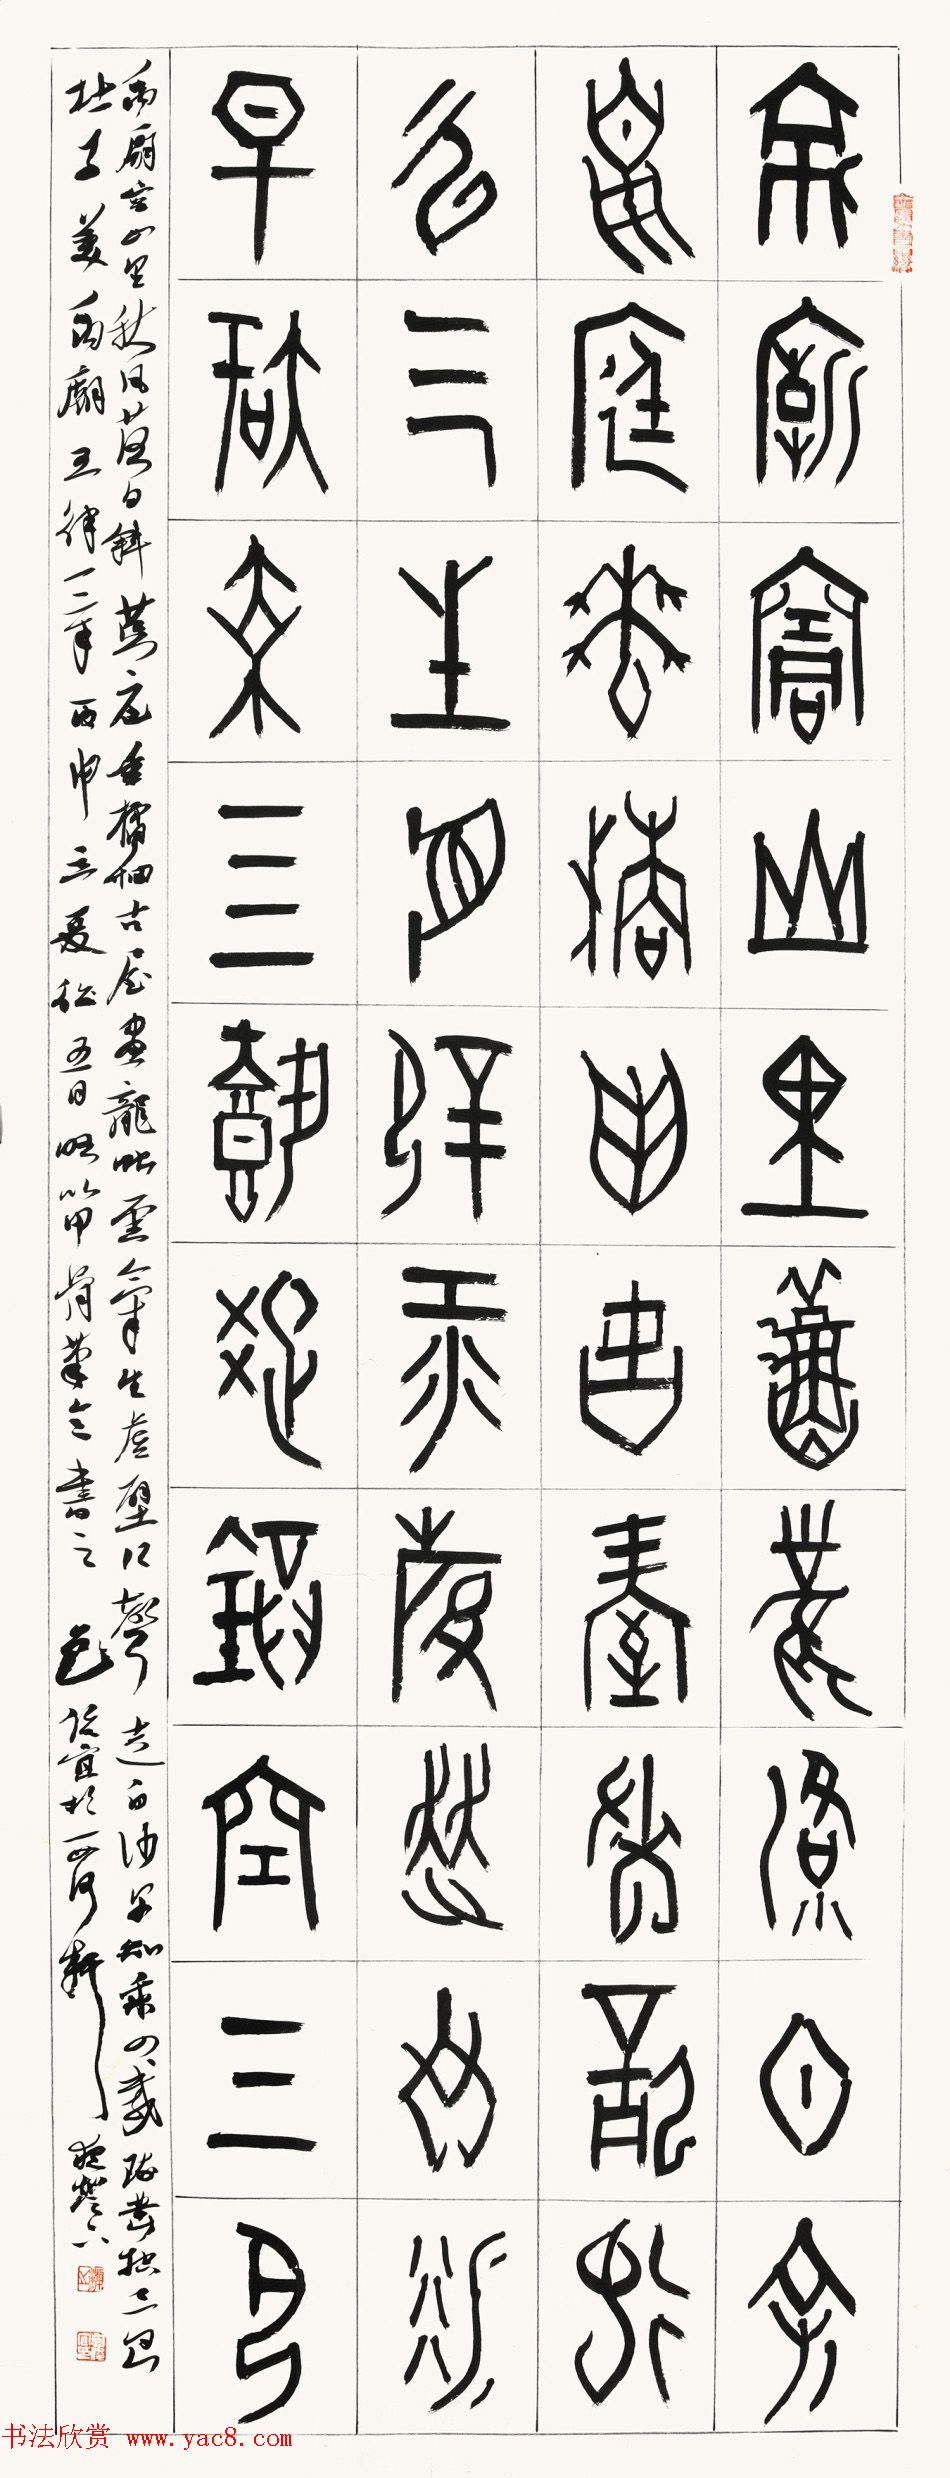 禹廟空山里秋風落日斜
荒庭垂橘柚古屋畫龍蛇
雲氣生虛壁江聲走白沙
早知乘四載疏鑿控三巴
禹廟空山里秋風落日斜荒庭垂橘柚古屋畫龍蛇雲氣生虛壁江聲走白沙早知乘四載疏鑿控三巴
杜子美禹廟五律一章丙申立夏後五日以甲骨筆意書之
书法欣赏 www.yac8.com